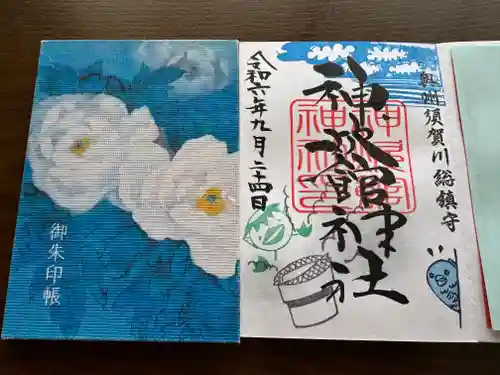 奥州須賀川総鎮守
神炊館神社
令和六年九月二十四日
御朱印帳